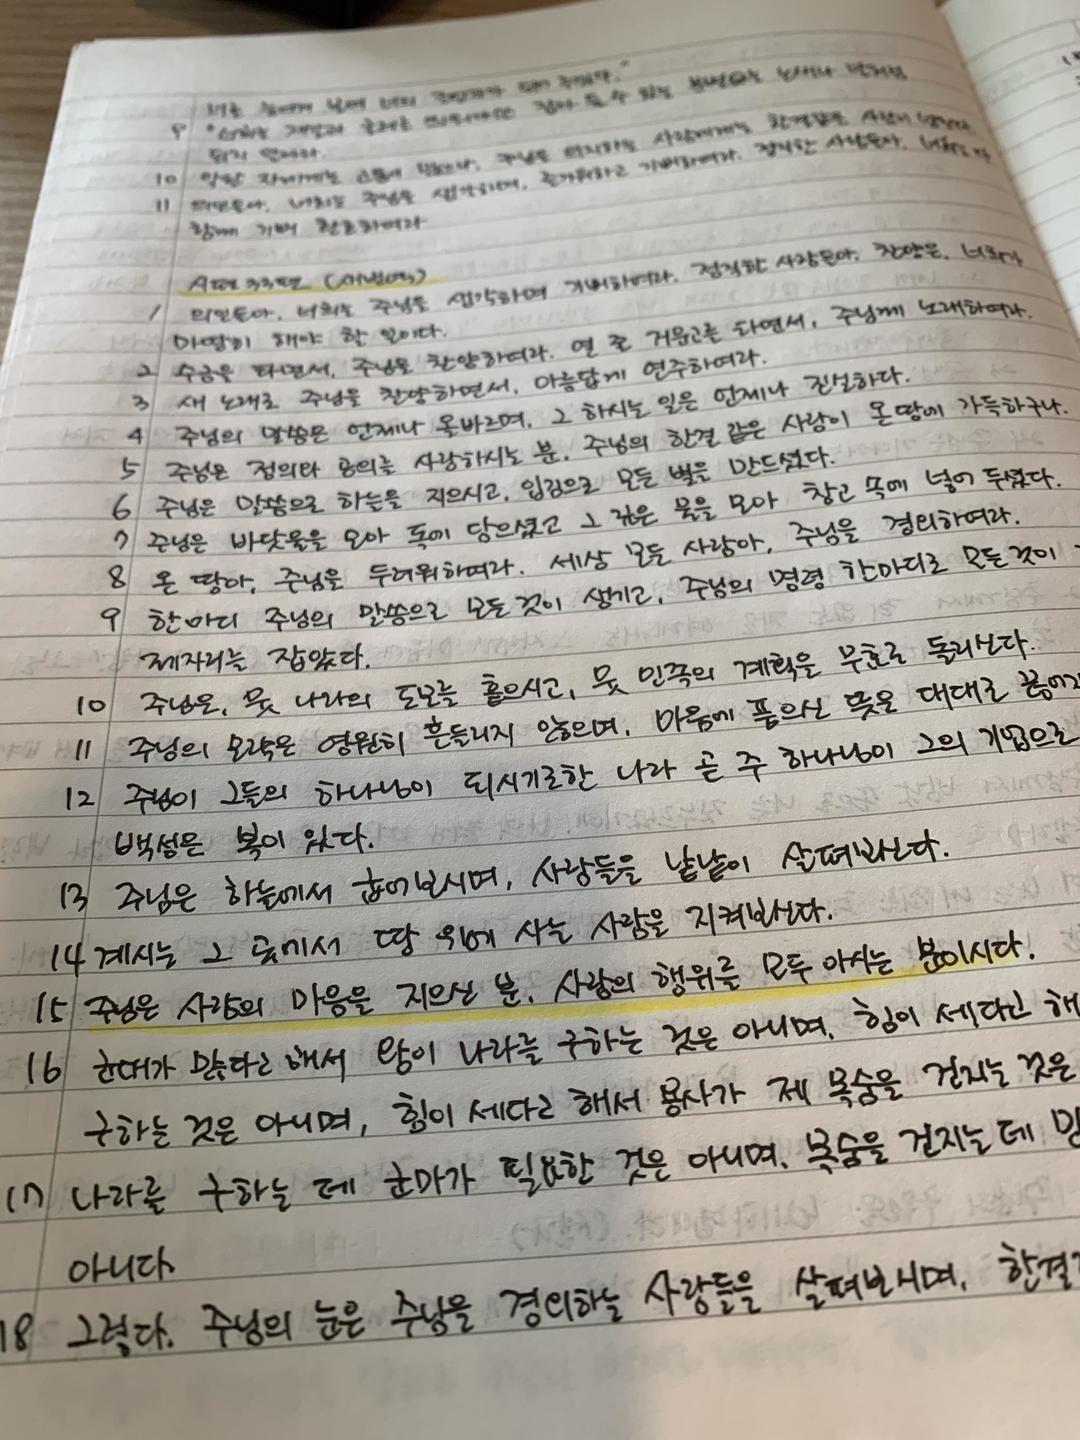 9
되지 말아라.
10 악한 자에게는 고통이 많으나, 주님을 의지하는 사람에게는 한결같은 사랑이 넘친다.
11 의인들아, 너희는 주님을 생각하며, 즐거워하고 기뻐하여라. 정직한 사람들아, 너희는 다
함께 기뻐 환호하여라.
시편 33편 (새번역)
1 의인들아, 너희는 주님을 생각하며 기뻐하여라. 정직한 사람들아, 찬양은, 너희가
마땅히 해야 할 일이다.
2 수금을 타면서, 주님을 찬양하여라. 열 줄 거문고를 타면서, 주님께 노래하여라.
3 새 노래로 주님을 찬양하면서, 아름답게 연주하여라.
4 주님의 말씀은 언제나 올바르며, 그 하시는 일은 언제나 진실하다.
5 주님은 정의와 공의를 사랑하시는 분, 주님의 한결 같은 사랑이 온 땅에 가득하구나.
6 주님은 말씀으로 하늘을 지으시고, 입김으로 모든 별을 만드셨다.
7 주님은 바닷물을 모아 독에 담으셨고 그 깊은 물을 모아 창고 속에 넣어 두셨다.
8 온 땅아, 주님을 두려워하여라. 세상 모든 사람아, 주님을 경외하여라.
9 한마디 주님의 말씀으로 모든것이 생기고, 주님의 명령 한마디로 모든것이
제자리를 잡았다.
10 주님은, 뭇 나라의 도모를 흩으시고, 뭇 민족의 계획을 무효로 돌리신다.
11 주님의 모략은 영원히 흔들리지 않으며, 마음에 품으신 뜻은 대대로 끊어지
12 주님이 그들의 하나님이 되시기로한 나라 곧 주 하나님이 그의 기업으로
백성은 복이 있다.
13 주님은 하늘에서 굽어보시며, 사람들을 낱낱이 살펴보신다.
14 계시는 그 곳에서 땅 위에 사는 사람을 지켜보신다.
15 주님은 사람의 마음을 지으신 분, 사람의 행위를 모두 아시는 분이시다.
16 군대가 많다고 해서 왕이 나라를 구하는 것은 아니며, 힘이 세다고 해
구하는 것은 아니며, 힘이 세다고 해서 용사가 제 목숨을 건지는 것은
17 나라를 구하는 데 군마가 필요한 것은 아니며, 목숨을 건지는 데
아니다.
18 그렇다. 주님의 눈은 주님을 경외하는 사람들을 살펴보시며, 한결